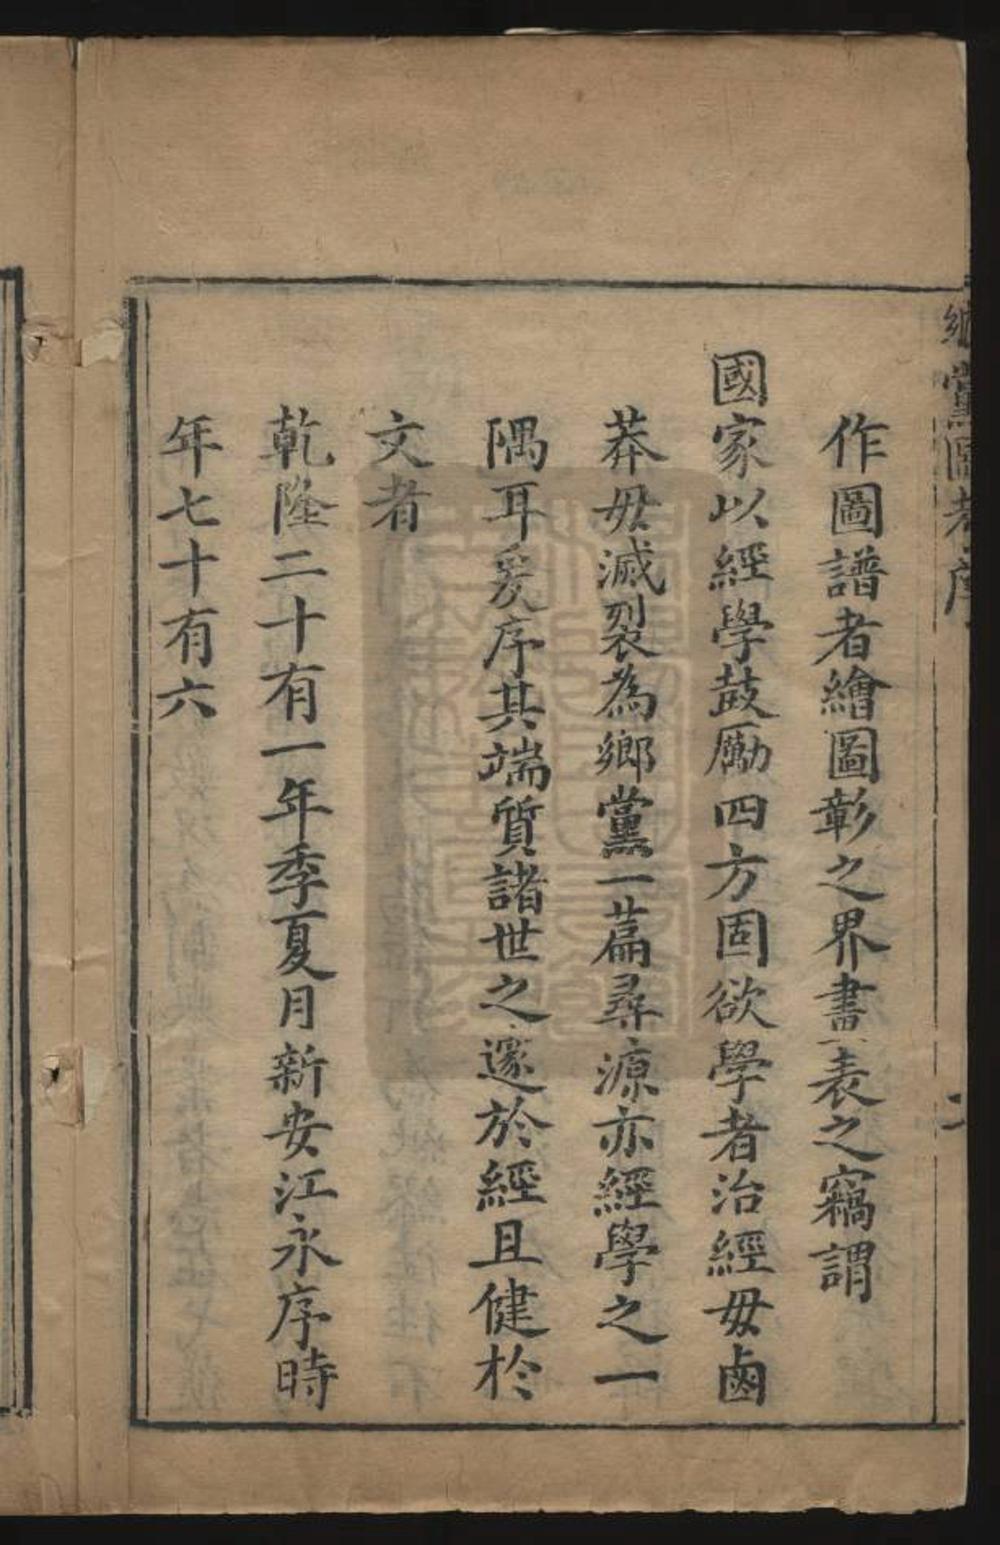 鄉黨圖考序
二
作圖譜者繪圖彰之界畫表之竊謂
國家以經學鼓勵四方固欲學者治經毋鹵
莽毋滅裂為鄉黨一篇尋源亦經學之一
隅耳爰序其端質諸世之邃於經且健於
文者
乾隆二十有一年季夏月新安江永序時
年七十有六